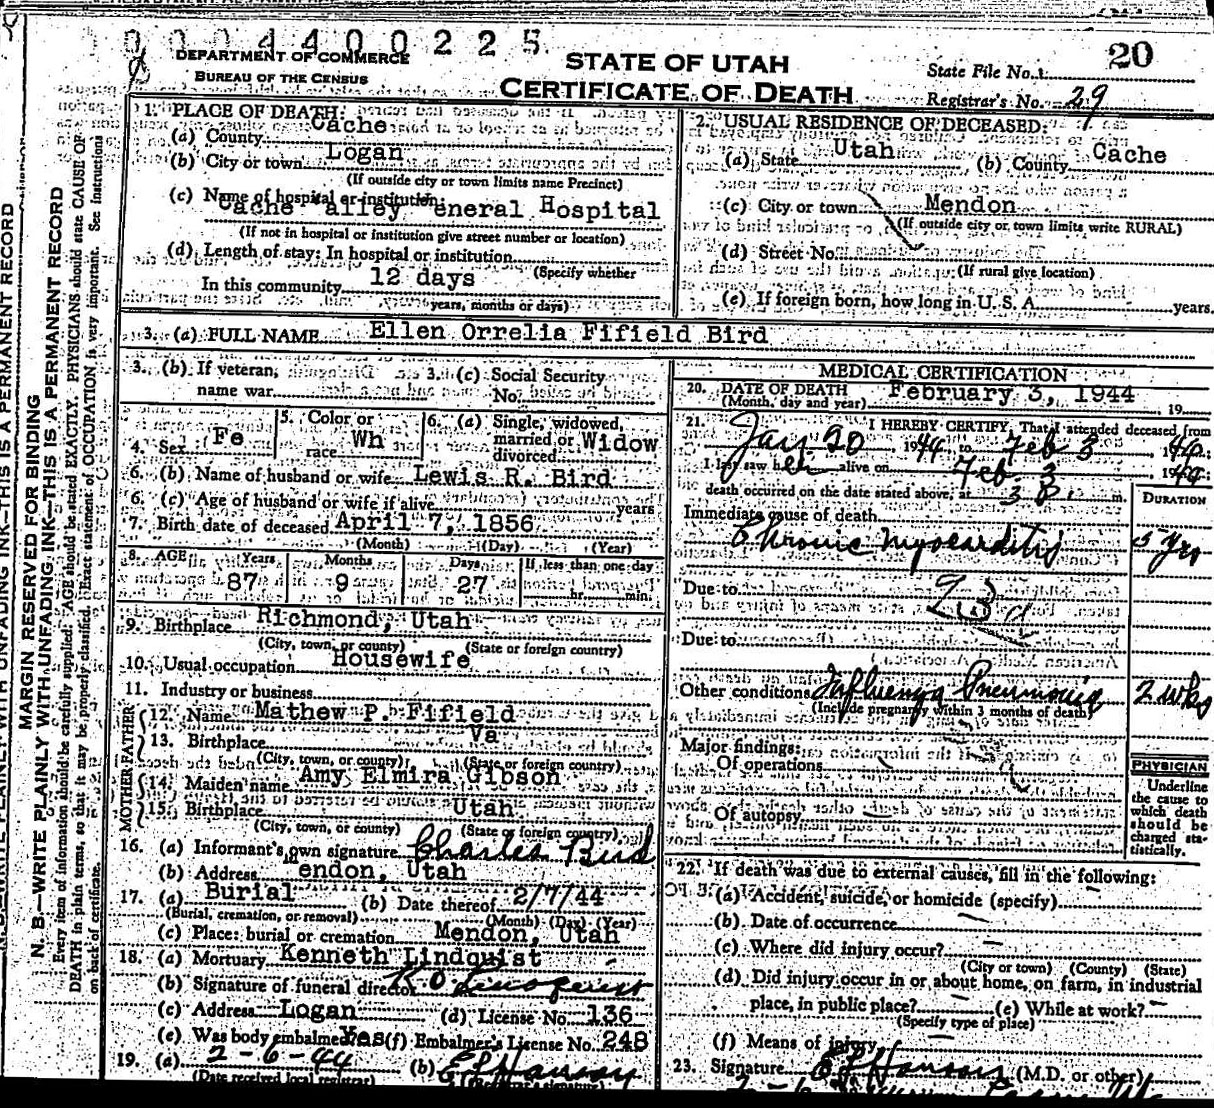 0 0 0 4 4 0 0 2 2 5
DEPARTMENT OF COMMERCE
BUREAU OF THE CENSUS
STATE OF UTAH
CERTIFICATE OF DEATH
State File No. 20
Registrar's No. 29
MARGIN RESERVED FOR BINDING
N. B.—WRITE PLAINLY WITH UNFADING INK—THIS IS A PERMANENT RECORD
Every item of information should be carefully supplied. AGE should be stated EXACTLY. PHYSICIANS should state CAUSE OF
DEATH in plain terms, so that it may be properly classified. Exact statement of OCCUPATION is very important. See instructions
on back of certificate.
1. PLACE OF DEATH:
(a) County Cache
(b) City or town Logan
(If outside city or town limits name Precinct)
(c) Name of hospital or institution:
Cache alley eneral Hospital
(If not in hospital or institution give street number or location)
(d) Length of stay: In hospital or institution
(Specify whether
In this community 12 days
years, months or days)
2. USUAL RESIDENCE OF DECEASED:
(a) State Utah (b) County Cache
(c) City or town Mendon
(If outside city or town limits write RURAL)
(d) Street No.
(If rural give location)
(e) If foreign born, how long in U. S. A. years.
3. (a) FULL NAME Ellen Orrelia Fifield Bird
3. (b) If veteran, name war
3. (c) Social Security No.
4. Sex Fe
5. Color or race Wh
6. (a) Single, widowed, married or divorced Widow
6. (b) Name of husband or wife Lewis R. Bird
6. (c) Age of husband or wife if alive years
7. Birth date of deceased April 7, 1856
(Month) (Day) (Year)
8. AGE Years Months Days If less than one day
87 9 27 hr. min.
9. Birthplace Richmond, Utah
(City, town, or county) (State or foreign country)
10. Usual occupation Housewife
11. Industry or business
FATHER
12. Name Mathew P. Fifield
13. Birthplace Va
(City, town, or county) (State or foreign country)
MOTHER
14. Maiden name Amy Elmira Gibson
15. Birthplace Utah
(City, town, or county) (State or foreign country)
16. (a) Informant's own signature Charles Bird
(b) Address endon, Utah
17. (a) Burial (b) Date thereof 2/7/44
(Burial, cremation, or removal) (Month) (Day) (Year)
(c) Place: burial or cremation Mendon, Utah
18. (a) Mortuary Kenneth Lindquist
(b) Signature of funeral director K O Lindquist
(c) Address Logan (d) License No. 136
(e) Was body embalmed Yes (f) Embalmer's License No. 248
19. (a) 2-6-44 (b) E L Hanson
(Date received local registrar)
MEDICAL CERTIFICATION
20. DATE OF DEATH February 3, 1944
(Month, day and year) 19
21. I HEREBY CERTIFY, That I attended deceased from
Jan 20 1944 to Feb 3 1944;
I last saw her alive on Feb. 3 1944;
death occurred on the date stated above, at 3 P. m.
DURATION
Immediate cause of death
Chronic myocarditis 5 yrs
Due to 93d
Due to
Other conditions Influenza Pneumonia 2 wks
(Include pregnancy within 3 months of death)
Major findings:
Of operations
Of autopsy
PHYSICIAN
Underline
the cause to
which death
should be
charged sta-
tistically.
22. If death was due to external causes, fill in the following:
(a) Accident, suicide, or homicide (specify)
(b) Date of occurrence
(c) Where did injury occur?
(City or town) (County) (State)
(d) Did injury occur in or about home, on farm, in industrial
place, in public place? (e) While at work?
(Specify type of place)
(f) Means of injury
23. Signature E L Hanson (M.D. or other)